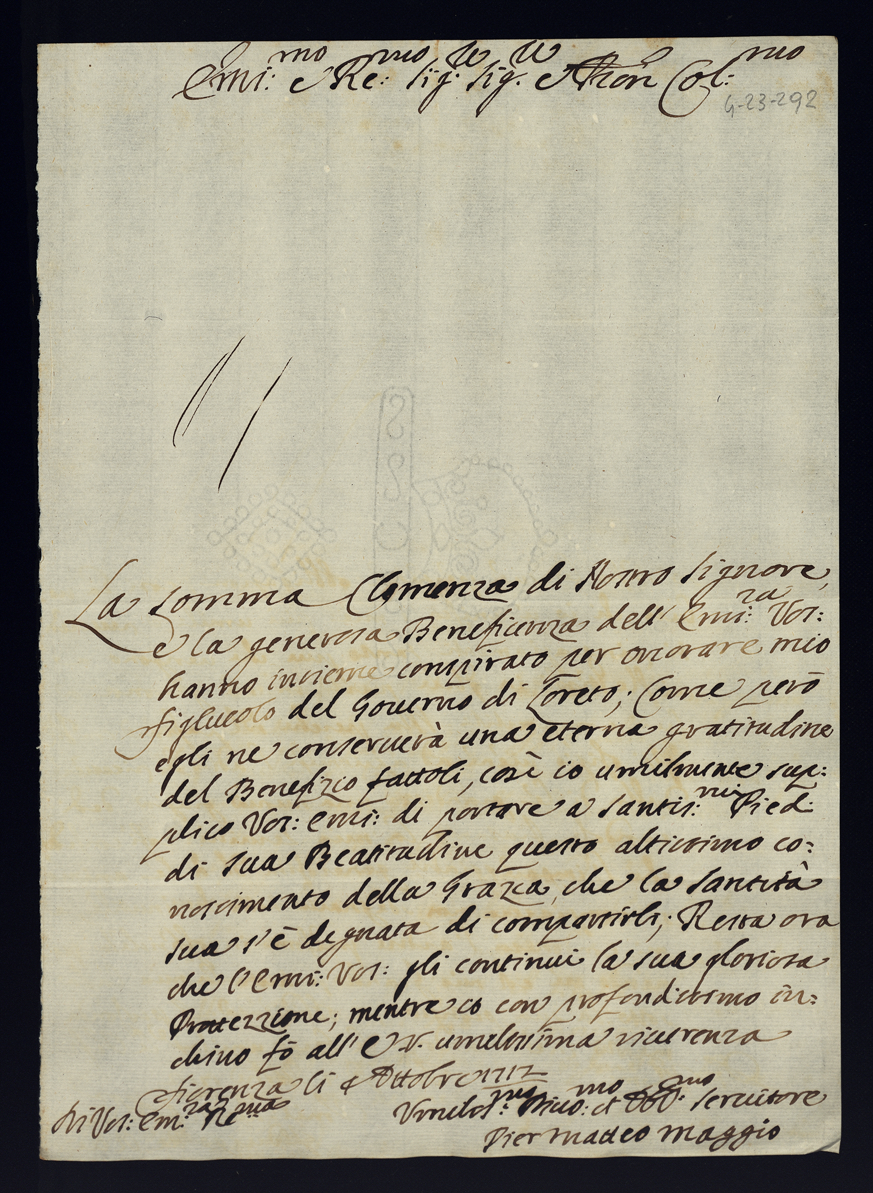 Emi:mo e Re:mo Sig:r Sig:r e Pron Col:mo
4-23-292
La somma Clemenza di Nostro Signore,
e la generosa Beneficenza dell' Emi:za Vos:
hanno insieme conspirato per onorare mio
figliuolo del Governo di Loreto; Come però
egli ne conserverà una eterna gratitudine
del Benefizio fattoli, così io umilmente sup:
plico Vos: Emi: di portare a Santis:mi Pied:
di Sua Beatitudine questo altissimo co:
noscimento della Grazia, che la Santità
sua s'è degnata di compartirli; Resta ora
che l'Emi: Vos: gli continui la sua gloriosa
Protezzione; mentre io con profondissimo in:
chino fò all' E. V. umilissima riverenza
Fiorenza li 4 Ottobre 1712
Di Vos: Em:za Re:ma
Umilis:mo Divo:mo et Obb:mo Servitore
Pier Matteo Maggio